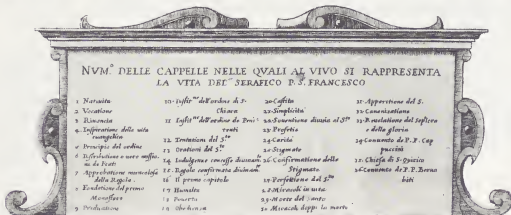 NVM.º DELLE CAPPELLE NELLE QVALI AL VIVO SI RAPPRESENTA
LA VITA DEL SERAFICO P. S. FRANCESCO
1 Natiuita
2 Vocatione
3 Rinoncia
4 Inspiratione della vita
euangelica
5 Principio del ordine
6
de Frati
7 Approbatione
della Regola
8 Fondatione del primo
Monastero
9 Predicatione
10 dell'ordine di S.
Chiara
11 dell'ordine de Peni
tenti
12 Tentationi del S.to
13 Orationi del S.to
14 Indulgenze concesse
15 Regola confirmata
16 Il primo capitolo
17 Humilta
18 Pouerta
19 Obedienza
20 Castita
21 Simplicita
22 diuina al S.to
23 Profetia
24 Carita
25 Stigmate
26 Confirmatione delle
Stigmate
27 del S.to
28 Miracoli in uita
29 Morte del Santo
30 Miracoli doppo la morte
31 Apparitione del S.
32 Canonizatione
33 Reuelatione del Sepolcro
e della gloria
34 Conuento de P. P. Cap
puccini
35 Chiesa di S. Quirico
36 Conuento de P. P.
biti